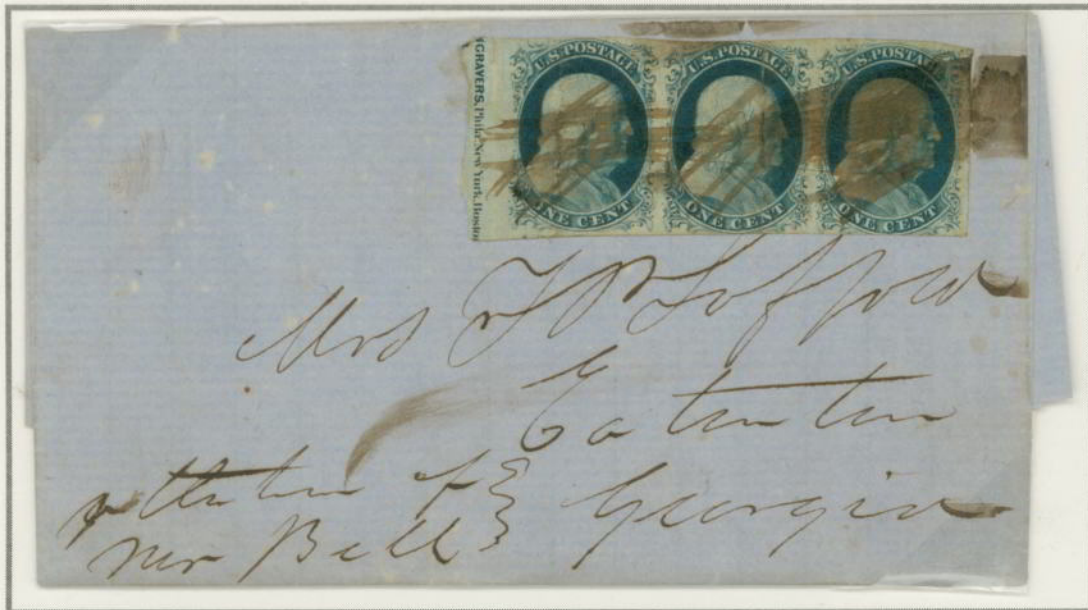 GRAVERS, Phila. New York, Boston
U.S. POSTAGE
ONE CENT
U.S. POSTAGE
ONE CENT
U.S. POSTAGE
ONE CENT
Mrs
Eatonton
Georgia
of
Mr Bell